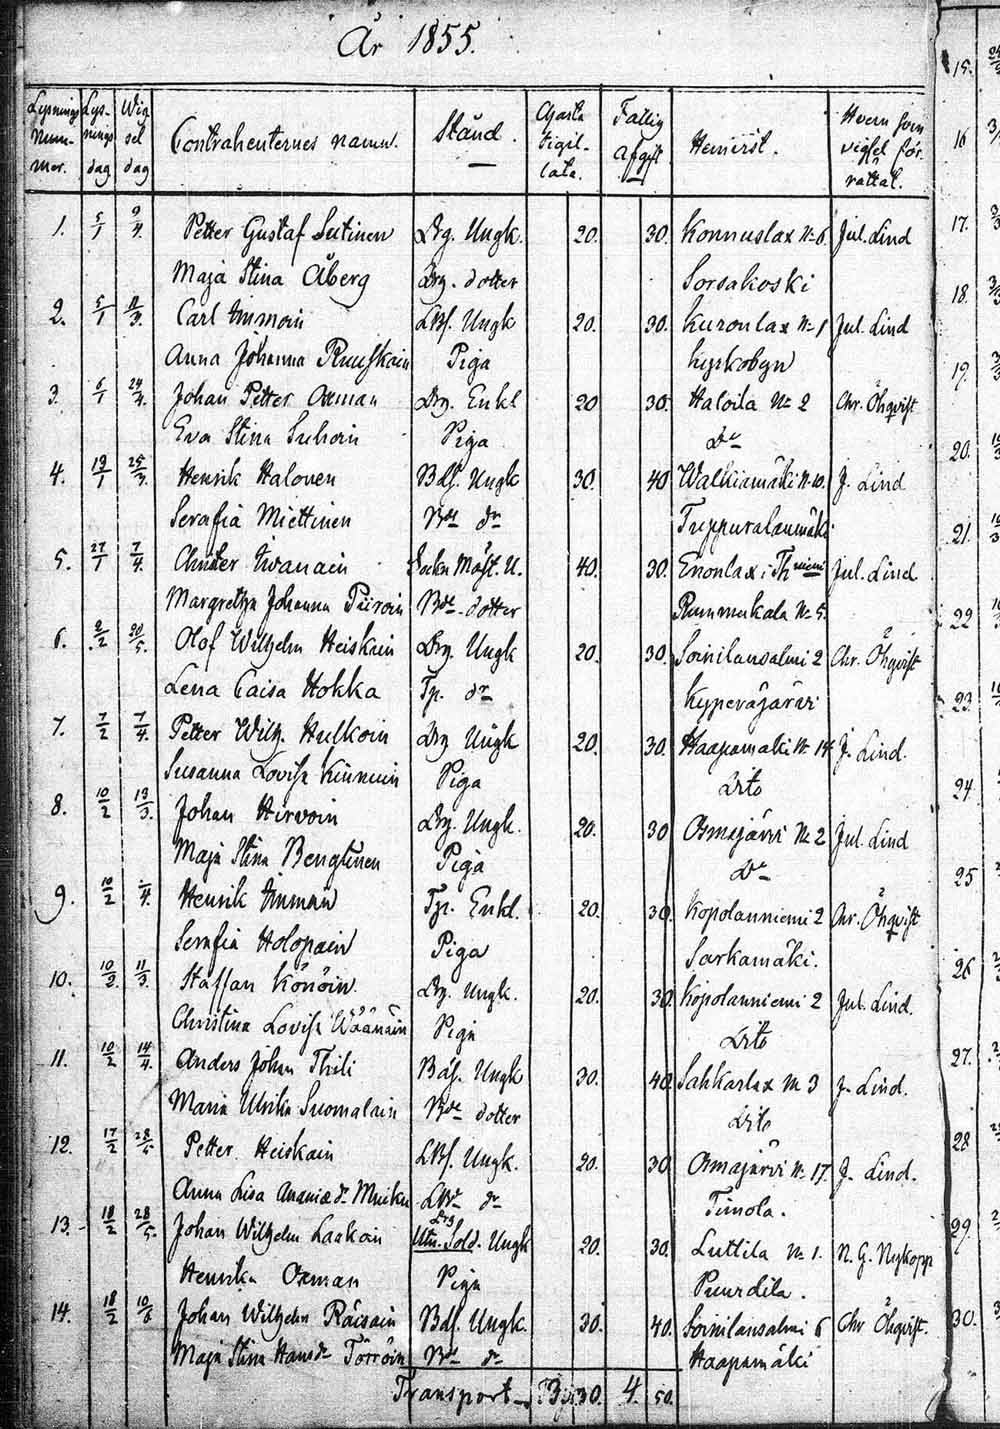 År 1855.
Lysnings Num- mer. Lys- nings dag Wig sel dag Contrahenternes namn. Stånd. Charta Sigil- lata. Fattig afgift Hemvist. Hvem som vigsel för- rättat.
1. 5/1 9/4. Petter Gustaf Sutinen Drg. Ungk. 20. 30. Konnuslax No 6 Jul. Lind
Maja Stina Åberg Drg. dotter Sorsakoski
2. 5/1 11/3. Carl Immoin LBf. Ungk 20. 30. Kuronlax No 1 Jul. Lind
Anna Johanna Ruuskain Piga Kyrkobyn
3. 6/1 24/4. Johan Petter Oxman Drg. Enkl 20 30. Haloila No 2 Chr. Öhqvist
Eva Stina Suhoin Piga Do
4. 13/1 25/3. Henrik Halonen Bdf. Ungk 30. 40 Walkiamäki No 10. J. Lind
Serafia Miettinen Bde dr Tuppuralanmäki
5. 27/1 7/4. Christer Iwanain Sockn Mäst. U. 40. 30. Enonlax i Thniemi Jul. Lind
Margretha Johanna Piiroin Bde dotter Rummukala No 5.
6. 2/2 20/5. Olof Wilhelm Heiskain Drg. Ungk 20. 30. Soinilansalmi 2 Chr. Öhqvist
Lena Caisa Hokka Tp. dr Kypeväjärvi
7. 7/2 7/4. Petter Wilh. Hulkoin Drg Ungk 20. 30. Haapamäki No 14. J. Lind.
Susanna Lovisa Kinnuin Piga Dito
8. 10/2 13/3. Johan Hirvoin Drg. Ungk. 20. 30 Osmajärvi No 2 Jul. Lind
Maja Stina Bengtinen Piga Do
9. 10/2 /4. Henrik Immoin Tp. Enkl. 20. 30. Kopolanniemi 2 Chr. Öhqvist
Serafia Holopain Piga Sarkamäki.
10. 10/2. 11/3. Staffan Könöin Drg. Ungk. 20. 30. Kopolanniemi 2 Jul. Lind.
Christina Lovisa Wäänäin Piga Dito
11. 10/2 14/4. Anders Johan Thili Bdf. Ungk 30. 40. Sahkarlax No 3 J. Lind.
Maria Ulrika Suomalain Bde dotter Dito
12. 17/2 28/5 Petter Heiskain LBf. Ungk. 20. 30 Osmajärvi No 17 J. Lind.
Anna Lisa Ananiæ dr Muikku LBe dr Timola.
13. 18/2 28/5. Johan Wilhelm Laakoin Drg Utn. Sold. Ungk 20. 30. Luttila No 1. N. G. Nykopp
Henrika Oxman Piga Puurdila.
14. 18/2 10/6 Johan Wilhelm Räisäin Bdf. Ungk. 30. 40. Soinilansalmi 6 Chr Öhqvist.
Maja Stina Hansdr Törröin Bde dr Haapamäki
Transport 3 30. 4. 50.
15.
16
17.
18.
19.
20.
21.
22
23.
24.
25
26
27.
28
29.
30.